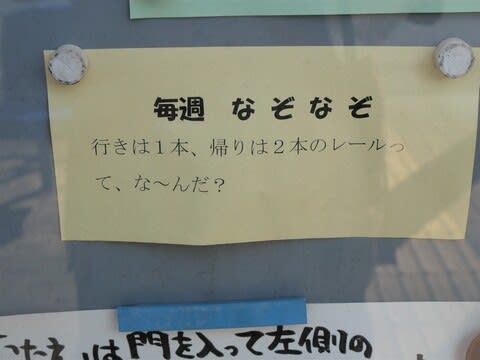 毎週 なぞなぞ
行きは１本、帰りは２本のレールっ
て、な～んだ？
は門を入って左側の